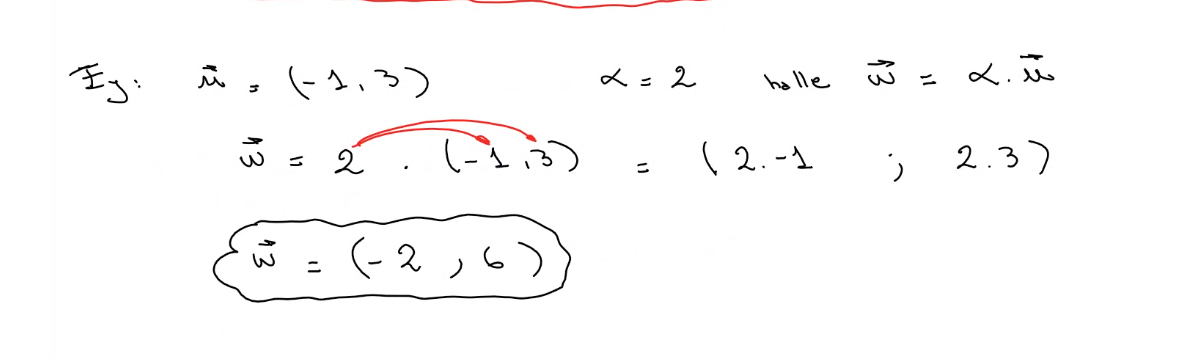 Ej: u⃗ = (-1, 3) α = 2 halle w⃗ = α . u⃗
w⃗ = 2 . (-1, 3) = (2.-1 ; 2.3)
w⃗ = (-2, 6)